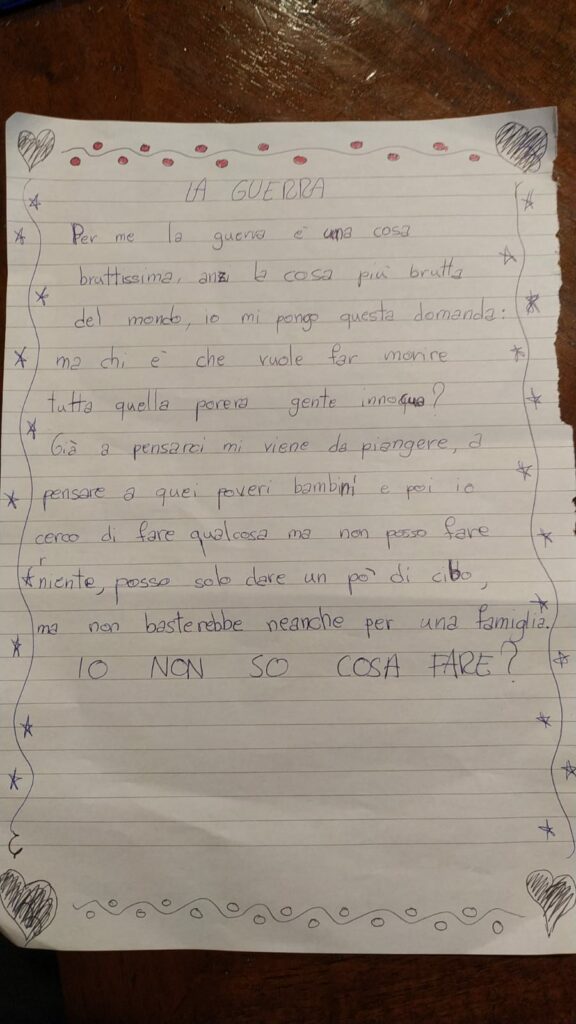 LA GUERRA
Per me la guerra è una cosa
bruttissima, anzi la cosa più brutta
del mondo, io mi pongo questa domanda:
ma chi è che vuole far morire
tutta quella povera gente innoqua?
Già a pensarci mi viene da piangere, a
pensare a quei poveri bambini e poi io
cerco di fare qualcosa ma non posso fare
niente, posso solo dare un pò di cibo,
ma non basterebbe neanche per una famiglia.
IO NON SO COSA FARE?